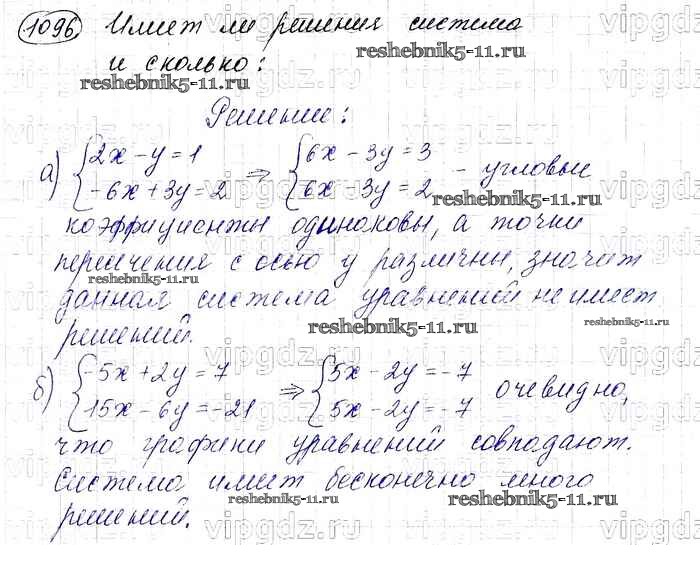 1096 Имеет ли решения система
и сколько:
Решение:
а) {2x - y = 1 ⇒ {6x - 3y = 3 - угловые
{-6x + 3y = 2 {6x - 3y = 2
коэффициенты одинаковы, а точки
пересечения с осью y различны, значит
данная система уравнений не имеет
решений.
б) {-5x + 2y = 7 ⇒ {5x - 2y = -7 очевидно,
{15x - 6y = -21 {5x - 2y = -7
что графики уравнений совпадают.
Система имеет бесконечно много
решений.
reshebnik5-11.ru
reshebnik5-11.ru
reshebnik5-11.ru
reshebnik5-11.ru
reshebnik5-11.ru
reshebnik5-11.ru
reshebnik5-11.ru
reshebnik5-11.ru
vipgdz.ru